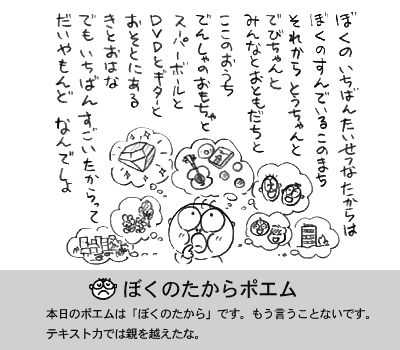 ぼくの いちばん たいせつな たからは
ぼくの すんでいる このまち
それから とうちゃんと
でびちゃんと
みんなと おともだちと
ここの おうち
でんしゃの おもちゃと
スーパーボールと
DVDと ギターと
おそとにある
きと おはな
でも いちばん すごい たからって
だいやもんど なんでしょ
ぼくのたからポエム
本日のポエムは「ぼくのたから」です。もう言うことないです。
テキスト力では親を越えたな。